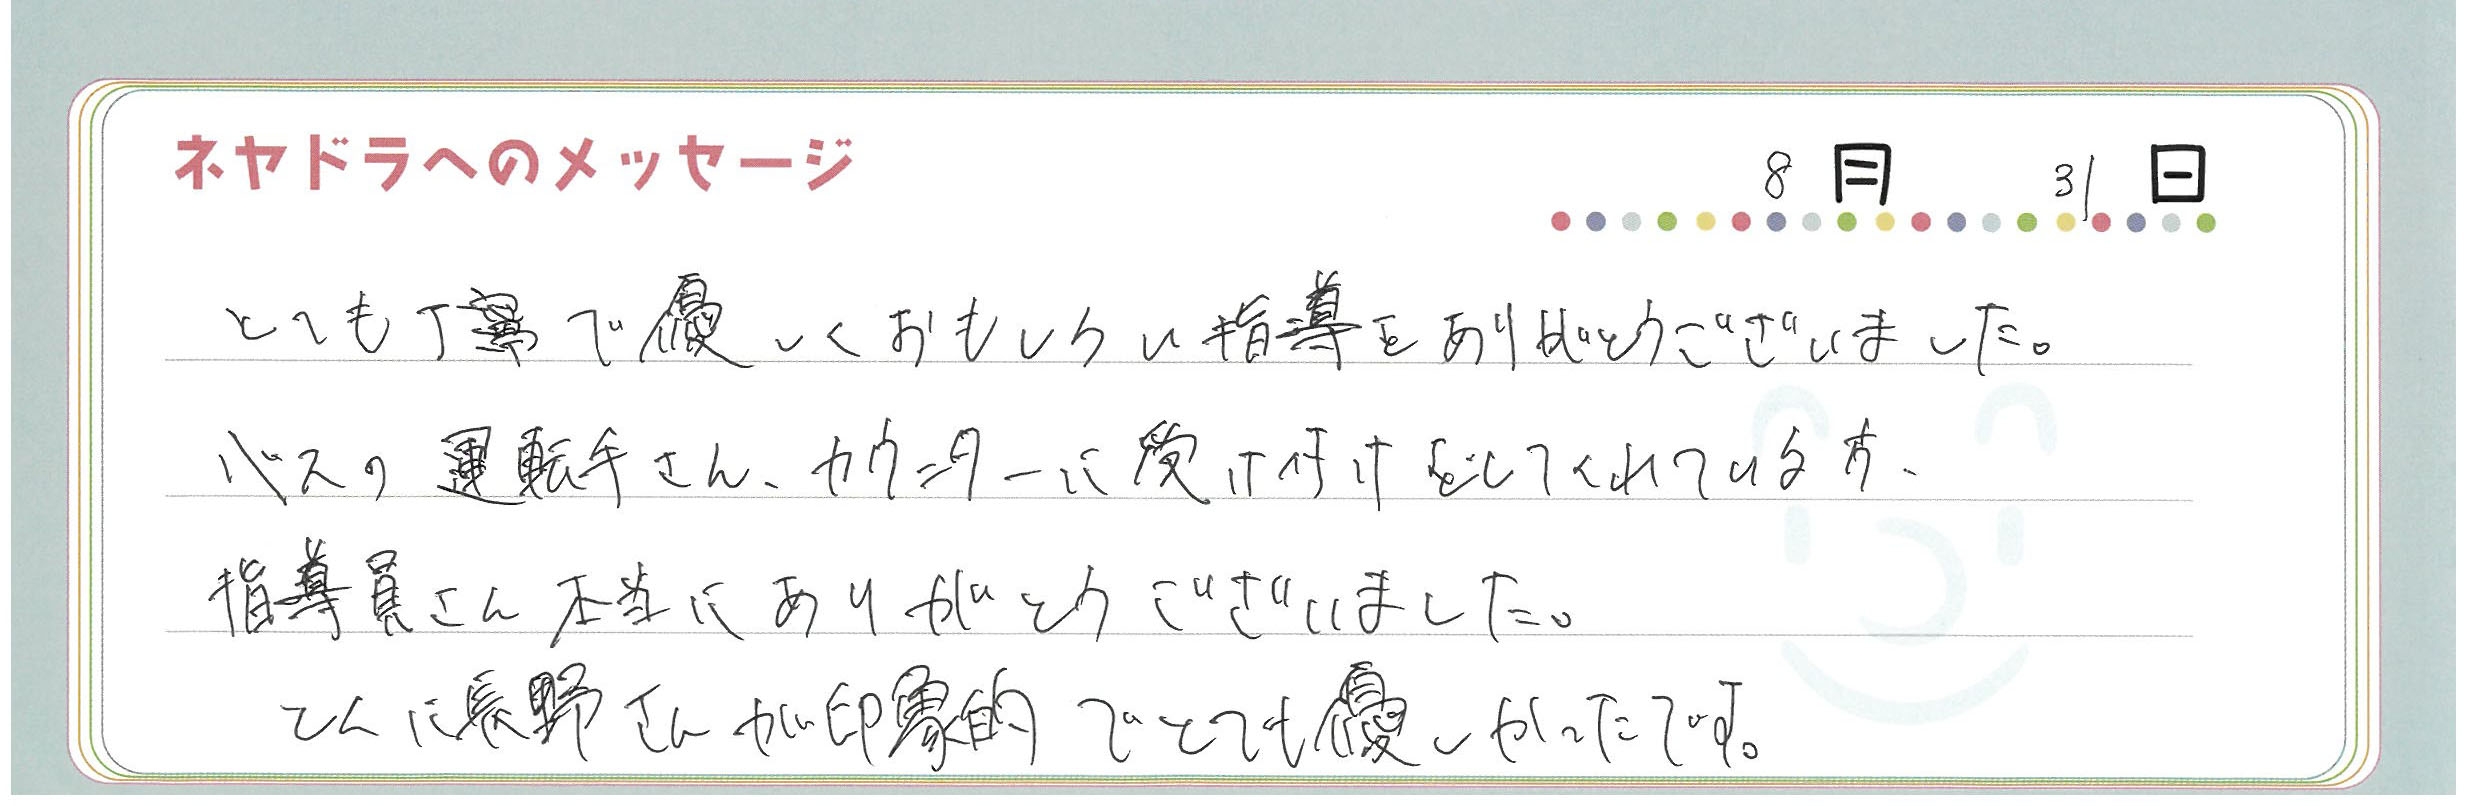 ネヤドラへのメッセージ
8月 31日
とても丁寧で優しくおもしろい指導をありがとうございました。
バスの運転手さん、カウンターに受け付けをしてくれている方、
指導員さん本当にありがとうございました。
とくに長野さんが印象的でとても優しかったです。